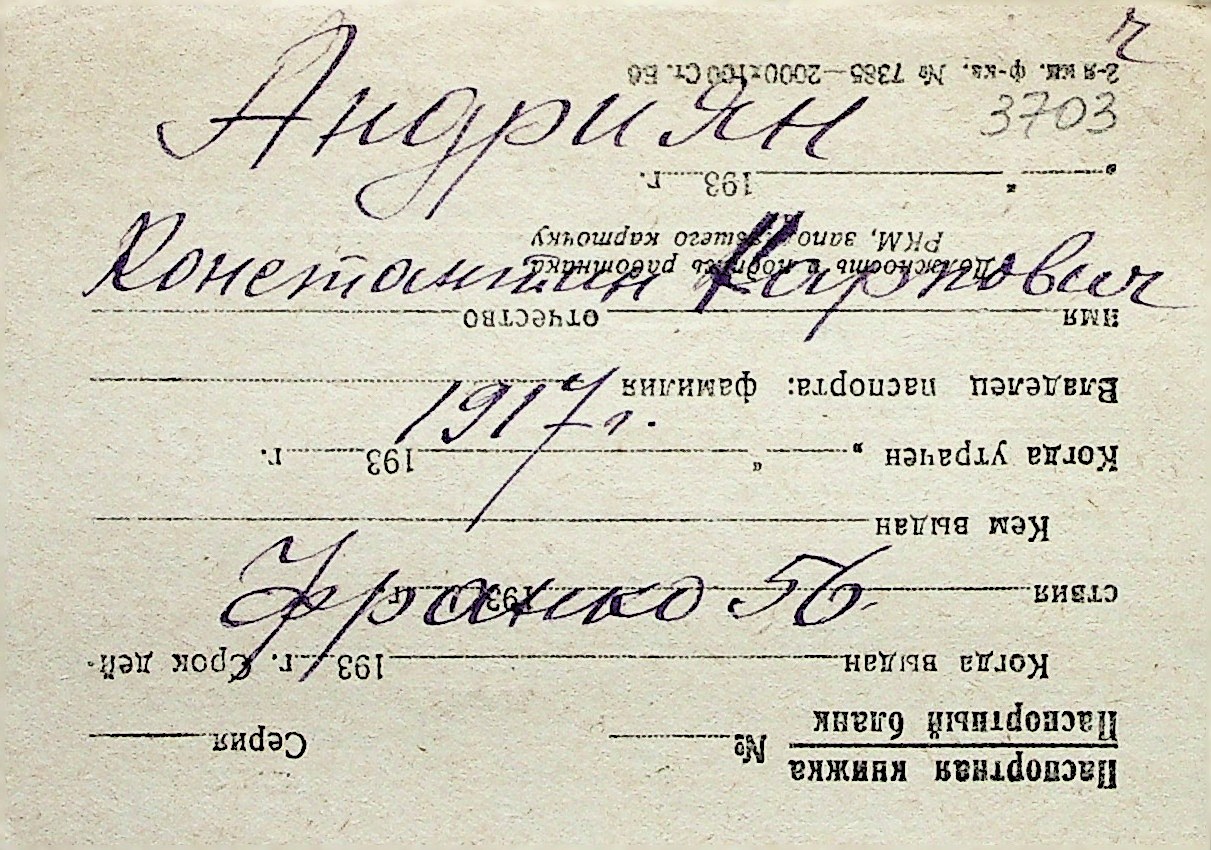 Андриян
3703
Константин Карпович
1917 г.
Франко 56.
Паспортная книжка
Паспортный бланк № Серия
Когда выдан 193 г. Срок дей-
ствия 193 г.
Кем выдан
Когда утрачен „ “ 193 г.
Владелец паспорта: фамилия
имя отчество
Должность и подпись работника
РКМ, заполнявшего карточку
„ “ 193 г.
2-я кн. ф-ка, № 7385—2000х100 Ст.